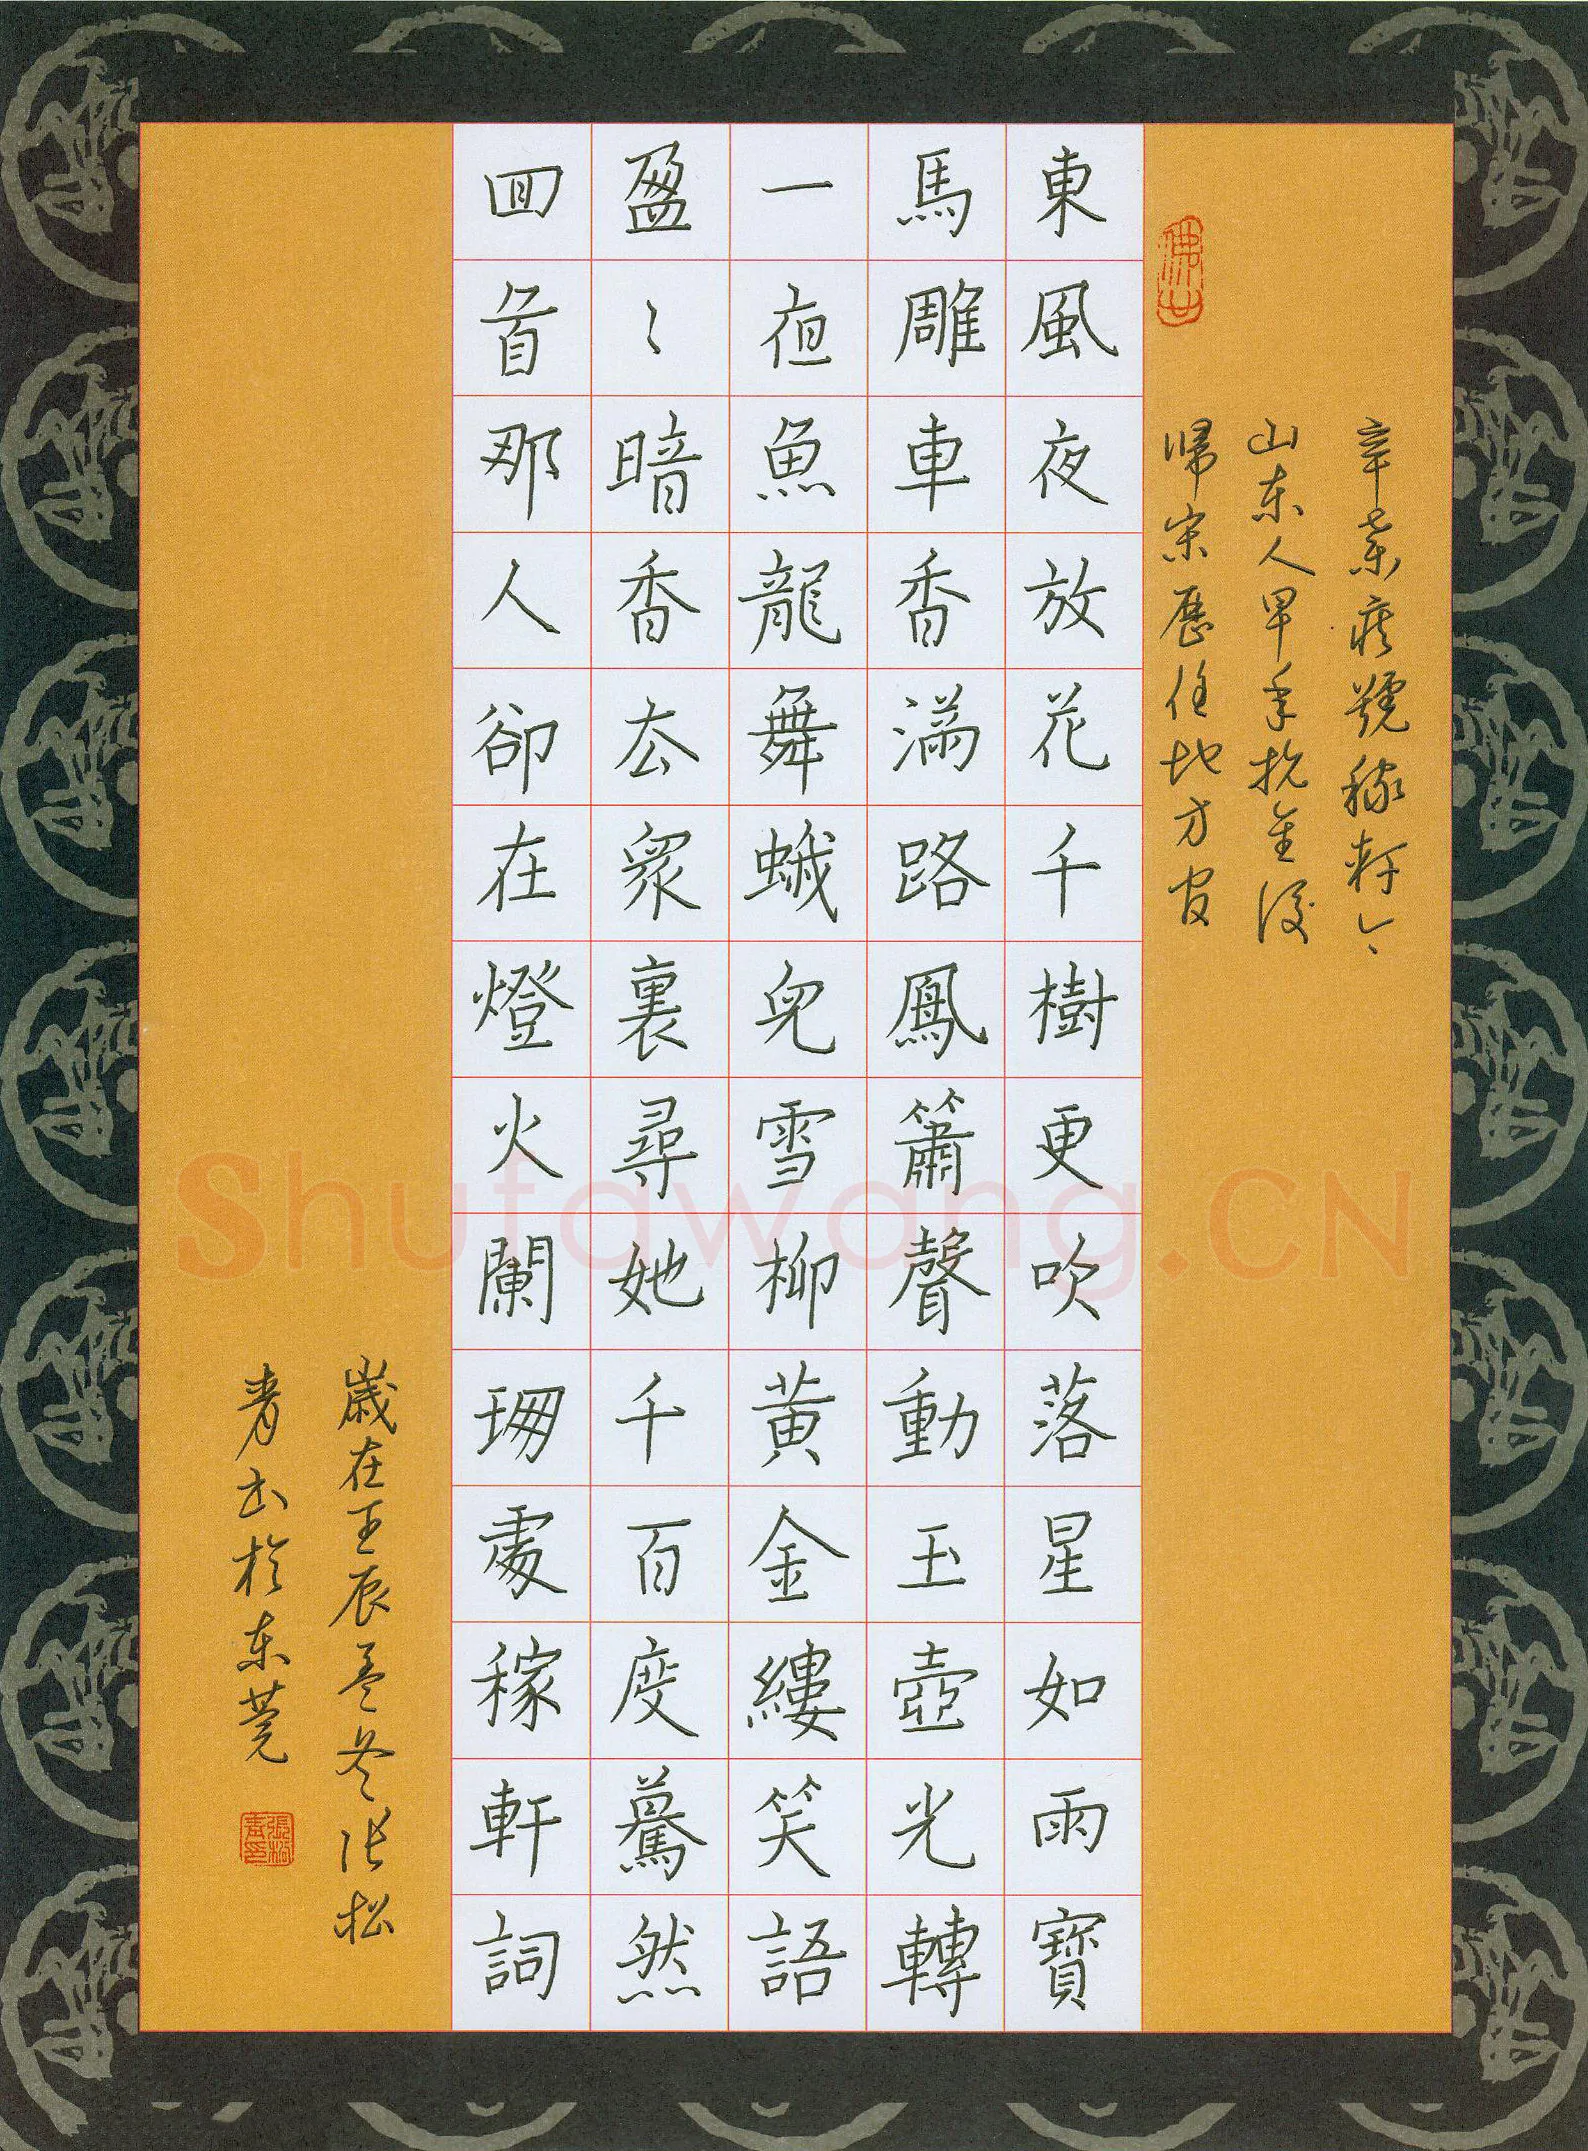 辛棄疾號稼軒
山东人早年抗金後
歸宋歷任地方官
東風夜放花千樹更吹落星如雨寶
馬雕車香滿路鳳簫聲動玉壺光轉
一夜魚龍舞蛾兒雪柳黃金縷笑語
盈〻暗香去眾裏尋她千百度驀然
回首那人卻在燈火闌珊處稼軒詞
歲在壬辰孟冬张松
青书於东莞
張松青印
Shufawang.CN